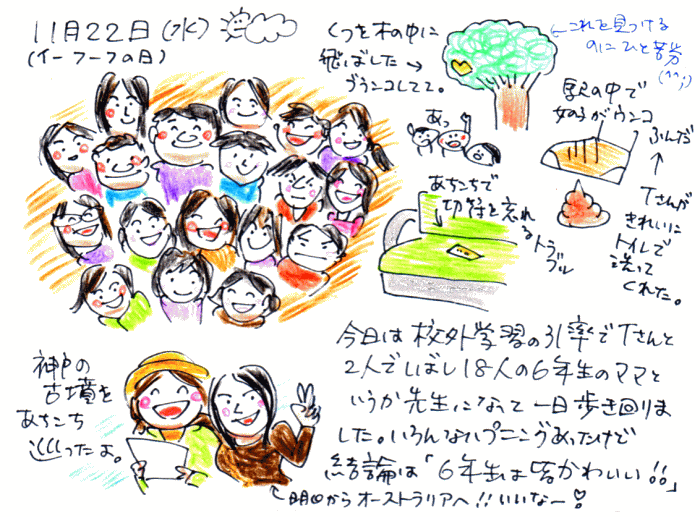 11月22日(水)
(イーフーフの日)
くつを木の中に
飛ばした→
ブランコしてて。
←これを見つける
のにひと苦労
(^^;)
あっ
駅の中で
女の子がウンコ
ふんだ
↑
Tさんが
きれいに
トイレで
洗って
くれた。
あちこちで
切符を忘れ
るトラ
ブル
今日は校外学習の引率でTさんと
2人でしばし18人の6年生のママと
いうか先生になって一日歩き回りま
した。いろんなハプニングあったけど
結論は「6年生は皆かわいい!!」
神戸の
古墳を
あちこち
巡ったよ。
明日からオーストラリアへ!!いいなー!